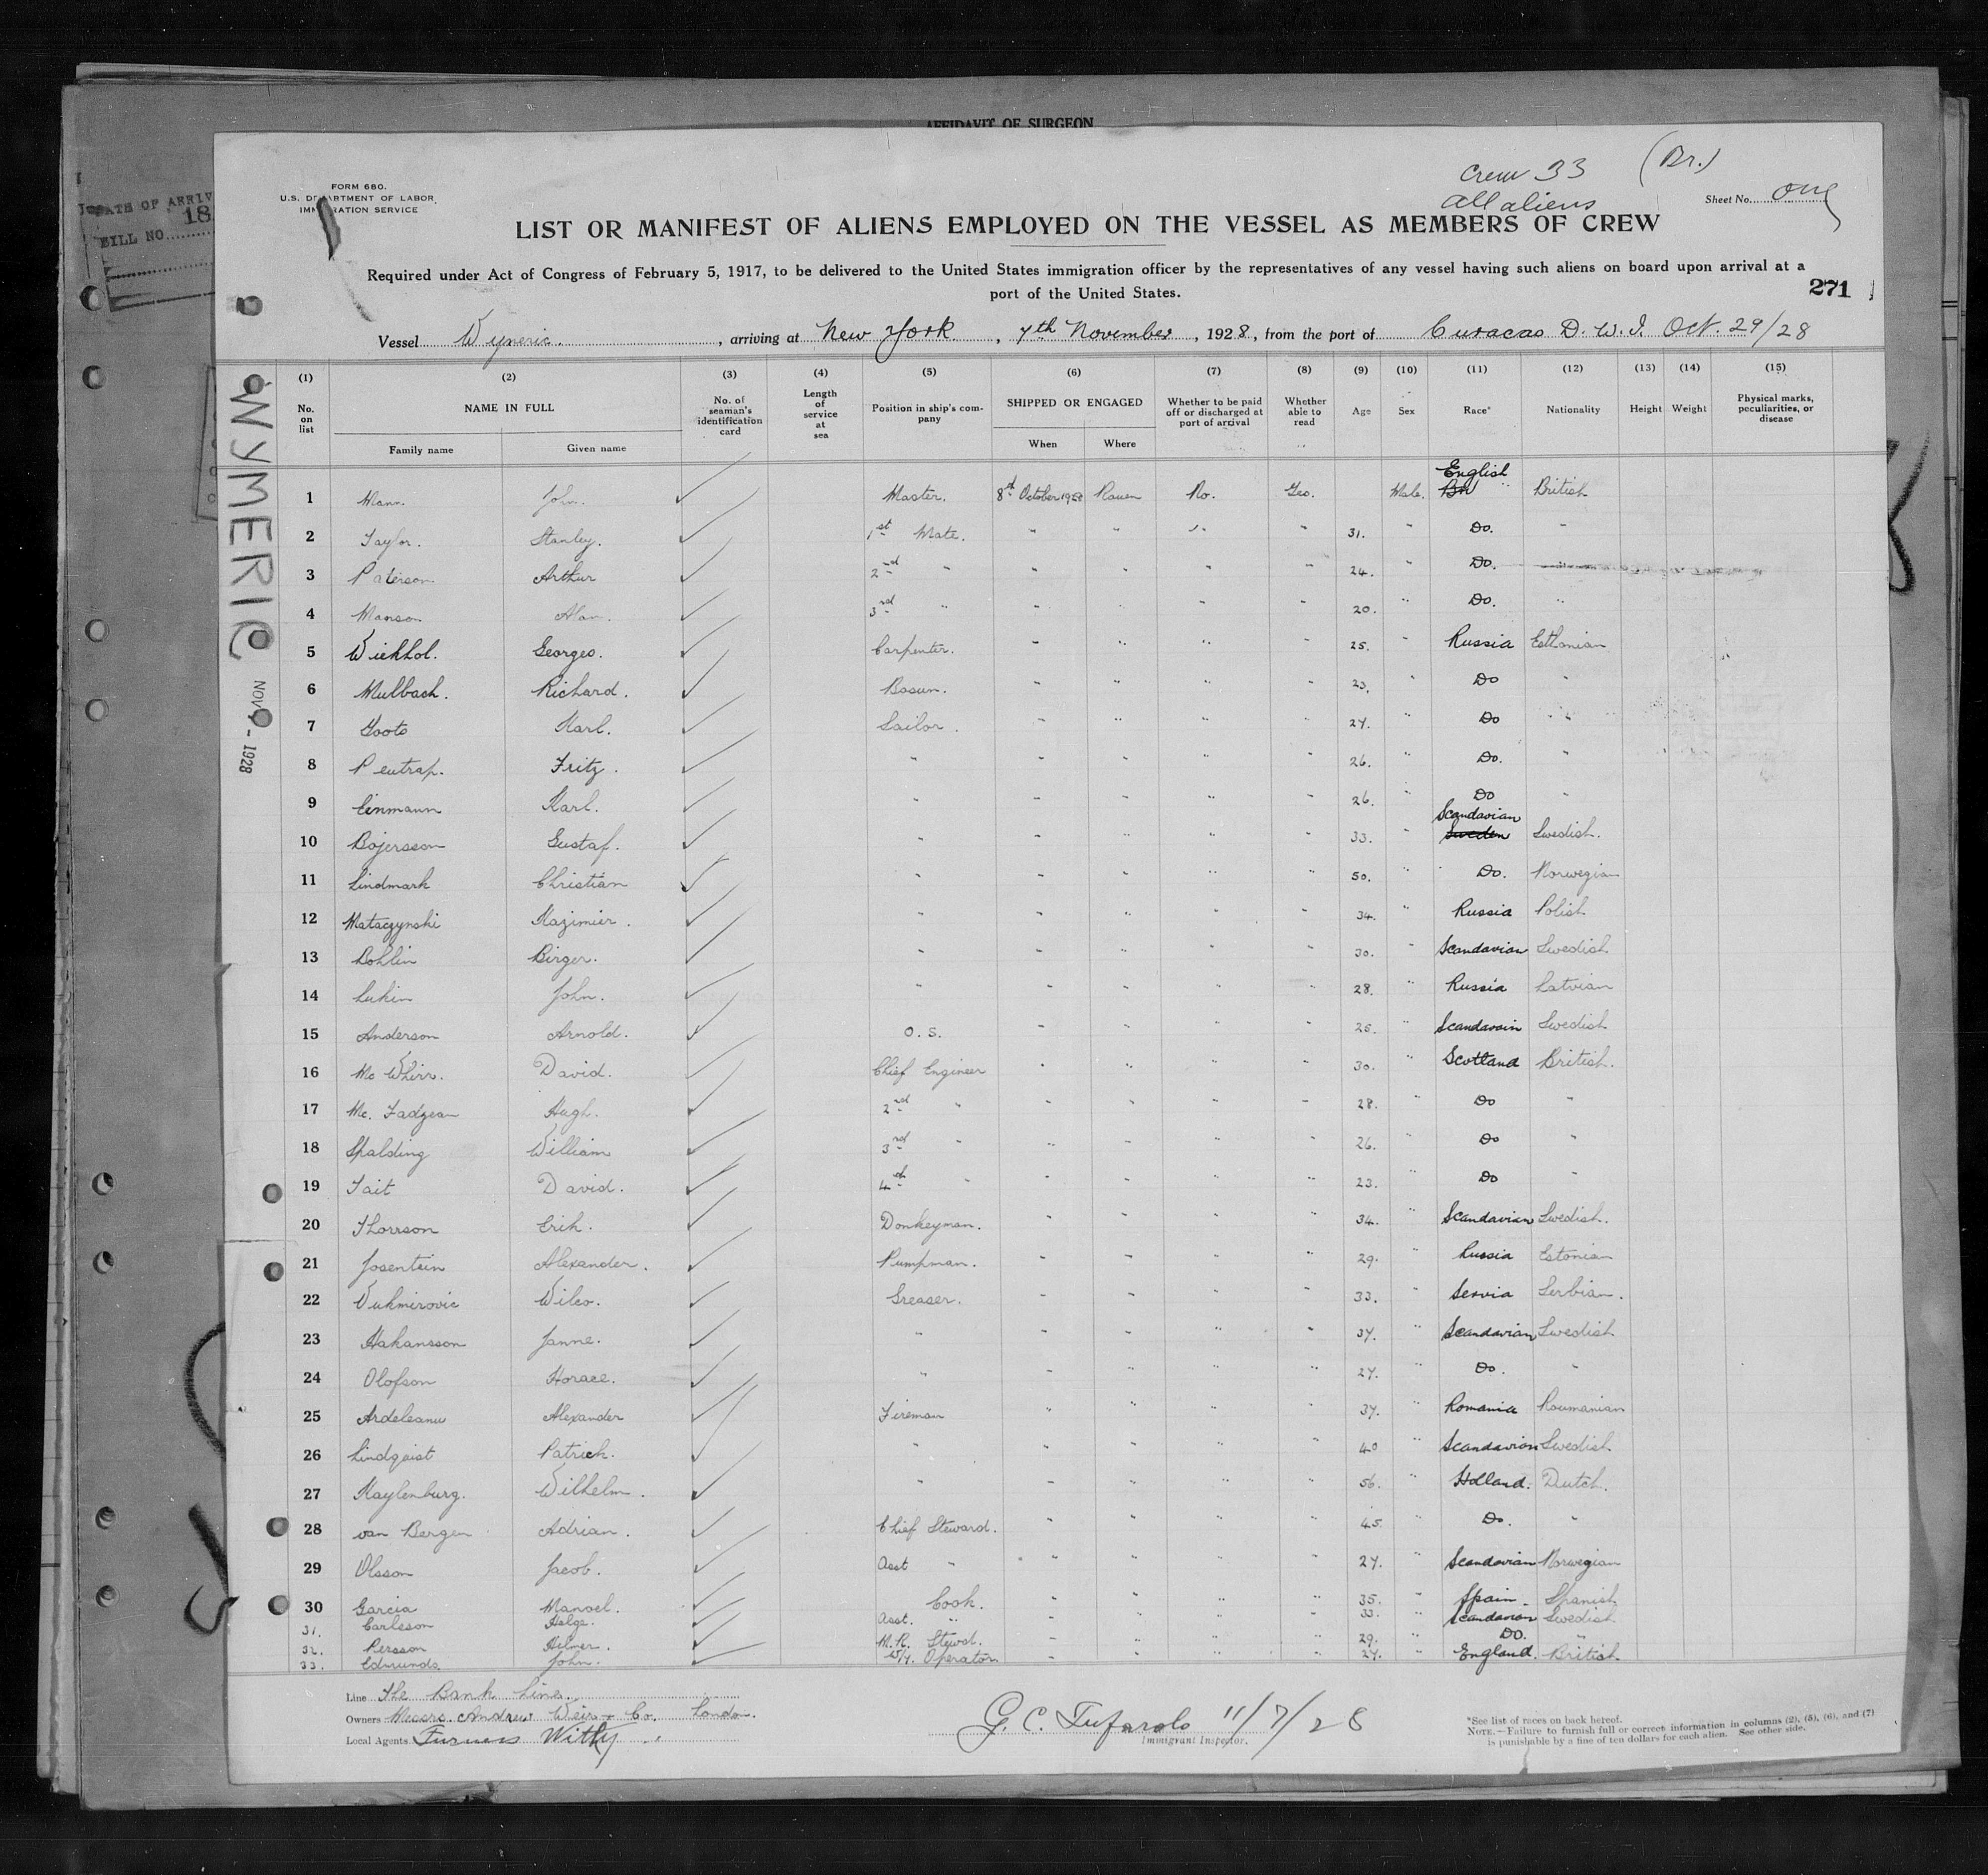 AFFIDAVIT OF SURGEON
DATE OF ARRIV
18
BILL NO.
FORM 680.
U.S. DEPARTMENT OF LABOR
IMMIGRATION SERVICE
Crew 33 (Br.)
all aliens
Sheet No. one
LIST OR MANIFEST OF ALIENS EMPLOYED ON THE VESSEL AS MEMBERS OF CREW
Required under Act of Congress of February 5, 1917, to be delivered to the United States immigration officer by the representatives of any vessel having such aliens on board upon arrival at a
port of the United States.
271
Vessel Wyneric, arriving at New York, 7th November, 1928, from the port of Curacao D. W. I. Oct. 29/28
WYMERIC NOV 7 - 1928
(1) (2) (3) (4) (5) (6) (7) (8) (9) (10) (11) (12) (13) (14) (15)
No. on list NAME IN FULL No. of seaman's identification card Length of service at sea Position in ship's company SHIPPED OR ENGAGED Whether to be paid off or discharged at port of arrival Whether able to read Age Sex Race* Nationality Height Weight Physical marks, peculiarities, or disease
Family name Given name When Where
1 Mann. John. Master. 8th October 1928 Rouen No. Yes. Male. English British
2 Taylor. Stanley. 1st Mate. " " " " 31. " Do. "
3 Paterson. Arthur 2nd " " " " " 24. " Do.
4 Manson Alan. 3rd " " " " " 20. " Do. "
5 Wiekhol. Georges. Carpenter. " " " " 25. " Russia Esthonian
6 Mulbach. Richard. Bosun. " " " " 23. " Do "
7 Goots Karl. Sailor. " " " " 27. " Do "
8 Peutrap. Fritz. " " " " " 26. " Do. "
9 Einmann Karl. " " " " " 26. " Do "
10 Bojersson Gustaf. " " " " " 33. " Scandavian Sweden Swedish.
11 Lindmark Christian " " " " " 50. " Do. Norwegian
12 Mataczynski Kazimier. " " " " " 34. " Russia Polish
13 Bohlin Birger. " " " " " 30. " Scandavian Swedish
14 Lukin John. " " " " " 28. " Russia Latvian
15 Anderson Arnold. O. S. " " " " 25. " Scandavain Swedish
16 Mc Whirr. David. Chief Engineer " " " " 30. " Scotland British.
17 Mc. Fadzean Hugh. 2nd " " " " " 28. " Do "
18 Spalding William 3rd " " " " " 26. " Do "
19 Tait David. 4th " " " " " 23. " Do "
20 Thorrson Erik. Donkeyman. " " " " 34. " Scandavian Swedish.
21 Josentein Alexander. Pumpman. " " " " 29. " Russia Estonian
22 Vukmirovic Wilco. Greaser. " " " " 33. " Servia Serbian.
23 Hakansson Janne. " " " " " 37. " Scandavian Swedish
24 Olofson Horace. " " " " " 27. " Do. "
25 Ardeleanu Alexander Fireman " " " " 37. " Romania Roumanian
26 Lindqaist Patrick. " " " " " 40 " Scandavian Swedish
27 Kaylenburg. Wilhelm. " " " " " 56. " Holland. Dutch.
28 van Bergen Adrian. Chief Steward. " " " " 45. " Do. "
29 Olsson Jacob. Asst " " " " " 27. " Scandavian Norwegian
30 Garcia Manoel. Cook. " " " " 35. " Spain. Spanish
31. Carlsson Helge. Asst. " " " " " 33. " Scandavian Swedish
32. Persson Helmer. M.R. Stewd. " " " " 29. " Do. "
33. Edmunds. John. W/T. Operator " " " " 27. " England. British
Line The Bank Line.
Owners Messrs. Andrew Weir & Co. London.
Local Agents Furness Withy
G. C. Tufarolo 11/7/28
Immigrant Inspector.
*See list of races on back hereof.
NOTE.—Failure to furnish full or correct information in columns (2), (5), (6), and (7)
is punishable by a fine of ten dollars for each alien. See other side.